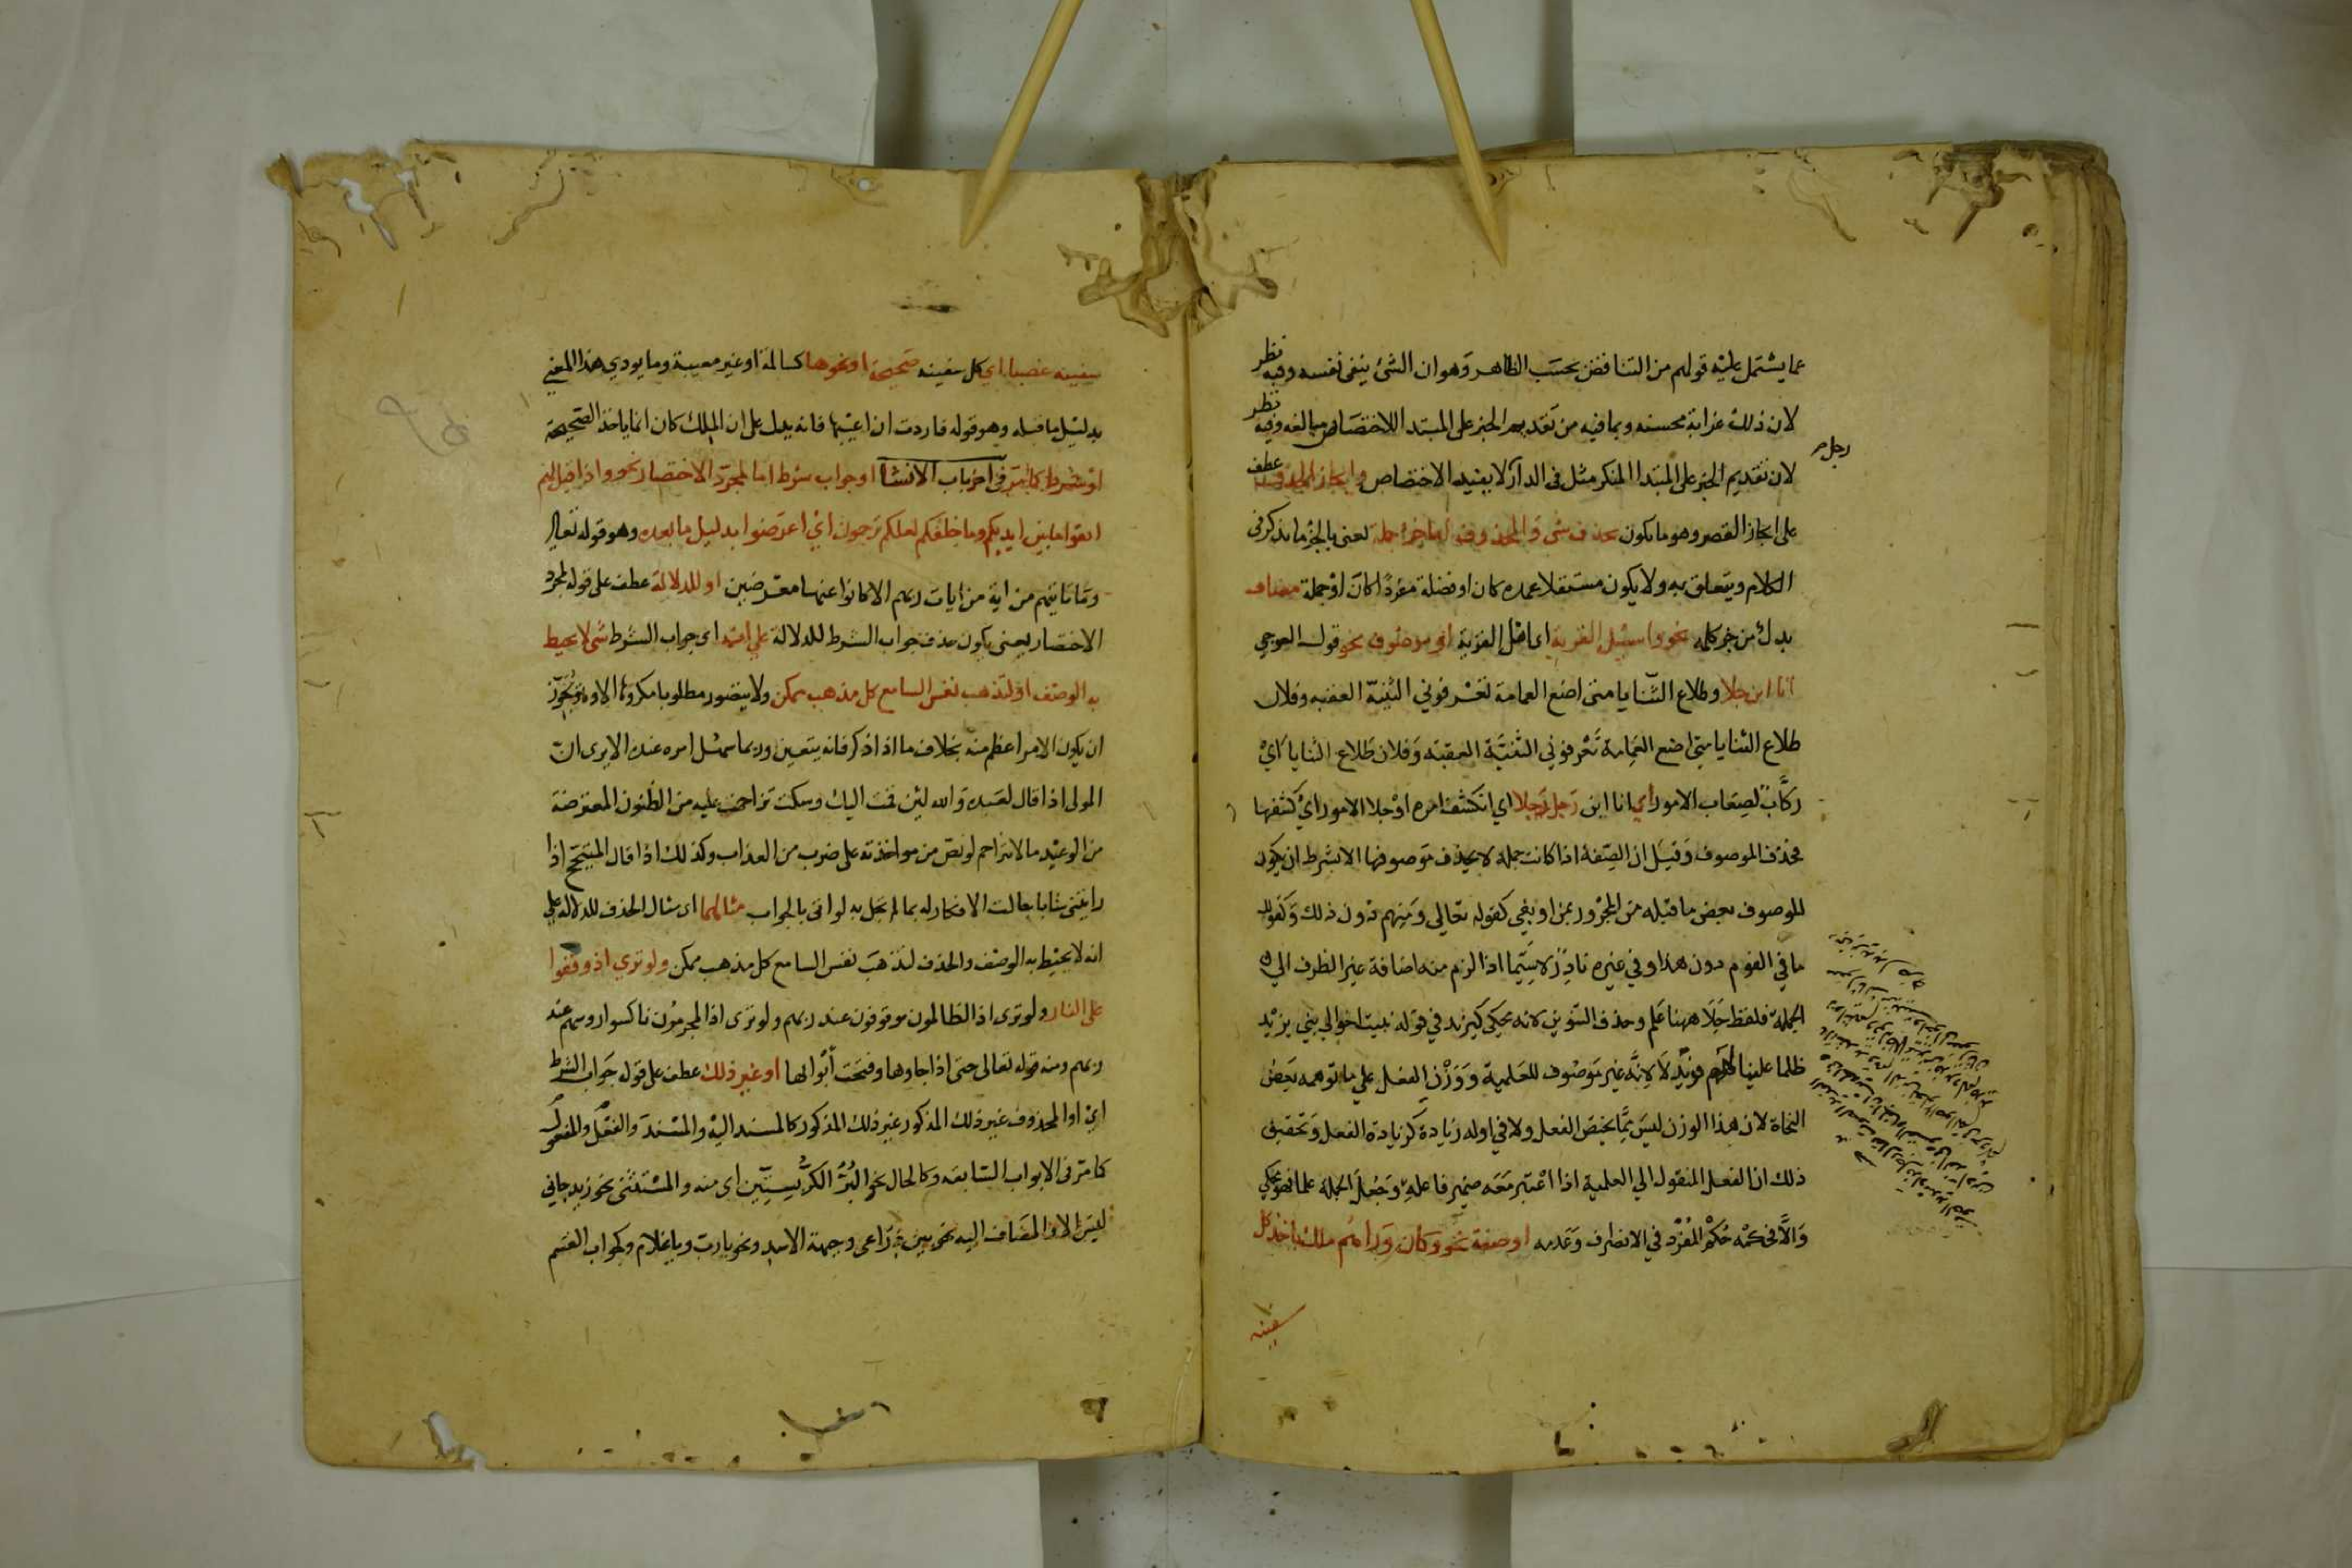 عما يشتمل عليه قولهم من التناقض بحسب الظاهر وهو ان الشئ ينفى نفسه وفيه نظر
لان ذلك غرابة محسنه وبما فيه من تقديم الخبر على المبتدا للاختصاص مبالغه وفيه نظر
لان تقديم الخبر على المبتدا المنكر مثل فى الدار رجل لا يفيد الاختصاص وايجاز الحذف عطف
على ايجاز القصر وهو ما يكون بحذف شئ والمحذوف اما جزء جملة يعنى بالجزء ما يذكر فى
الكلام ويتعلق به ولا يكون مستقلا عمده كان او فضلة مفردا كان او جملة مضاف
بدل من جزء جملة نحو واسئل القرية اى اهل القرية او موصوف نحو قول العرجي
انا ابن جلا وطلاع الثنايا متى اضع العمامة تعرفوني الثنية العقبه وفلان
طلاع الثنايا متى اضع العمامة تعرفوني الثنية العقبه وفلان طلاع الثنايا اي
ركاب لصعاب الامور اي انا ابن رجل جلا اي انكشف امره او جلا الامور اي كشفها
فحذف الموصوف وقيل ان الصفة اذا كانت جملة لا يحذف موصوفها الا بشرط ان يكون
للموصوف بعض ما قبله من المجرور بمن او بفي كقوله تعالي ومنهم دون ذلك وكقولك
ما في القوم دون هذا وفي غيره نادر لا سيما اذا لزم منه اضافة غير الظرف الي
الجملة فلفظ جلا ههنا علم وحذف التنوين لانه محكي كيزيد في قوله نبيت اخوالي بني يزيد
ظلما علينا لهم فديد لا لانه غير موصوف للعلمية ووزن الفعل علي ما توهمه بعض
النحاة لان هذا الوزن ليس مما يختص الفعل ولا في اوله زيادة كزيادة الفعل وتحقيق
ذلك ان الفعل المنقول الي العلمية اذا اعتبر معه ضمير فاعله وجعل الجملة علما فهو محكي
والا فحكمه حكم المفرد في الانصراف وعدمه او صفة نحو وكان وراءهم ملك ياخذ كل
سفينه
سفينه غصبا اى كل سفينه صحيحة او نحوها كسالمة او غير معيبة وما يودي هذا المعني
بدليل ما قبله وهو قوله فاردت ان اعيبها فانه يدل على ان الملك كان انما ياخذ الصحيحة
او شرط كما مر فى اخر باب الانشا او جواب شرط اما لمجرد الاختصار نحو واذا قيل لهم
اتقوا ما بين ايديكم وما خلفكم لعلكم ترحمون اي اعرضوا بدليل ما بعده وهو قوله تعالى
وما تاتيهم من اية من ايات ربهم الا كانوا عنها معرضين او للدلالة عطف على قوله لمجرد
الاختصار يعنى يكون حذف جواب الشرط للدلالة علي انه اى جواب الشرط شئ لا يحيط
به الوصف او لتذهب نفس السامع كل مذهب ممكن ولا يتصور مطلوبا او مكروها الا ويجوز
ان يكون الامر اعظم منه بخلاف ما اذا ذكر فانه يتعين وربما سهل امره عنده الا يرى ان
المولى اذا قال لعبده والله لئن قمت اليك وسكت تزاحمت عليه من الظنون المعترضة
من الوعيد ما لا تتزاحم لو نص من مواخذته على ضرب من العذاب وكذلك اذا قال المتبجح اذا
رايتني شابا جالت الافكار له بما لم تجل به لو اتى بالجواب مثالهما اى مثال الحذف للدلالة علي
انه لا يحيط به الوصف والحذف لتذهب نفس السامع كل مذهب ممكن ولو تري اذ وقفوا
على النار ولو ترى اذ الظالمون موقوفون عند ربهم ولو ترى اذ المجرمون ناكسوا روسهم عند
ربهم ومنه قوله تعالى حتى اذا جاوها وفتحت ابوابها او غير ذلك عطف على قوله جواب الشرط
اي او المحذوف غير ذلك المذكور غير ذلك المذكور كالمسند اليه والمسند والفعل والمفعول
كما مر فى الابواب السابقه وكالحال نحو البر الكر بستين اى منه والمستثنى نحو زيد جاني
ليس الا والمضاف اليه نحو بين ذراعى وجبهة الاسد ونحو يا رب ويا غلام وكجواب القسم